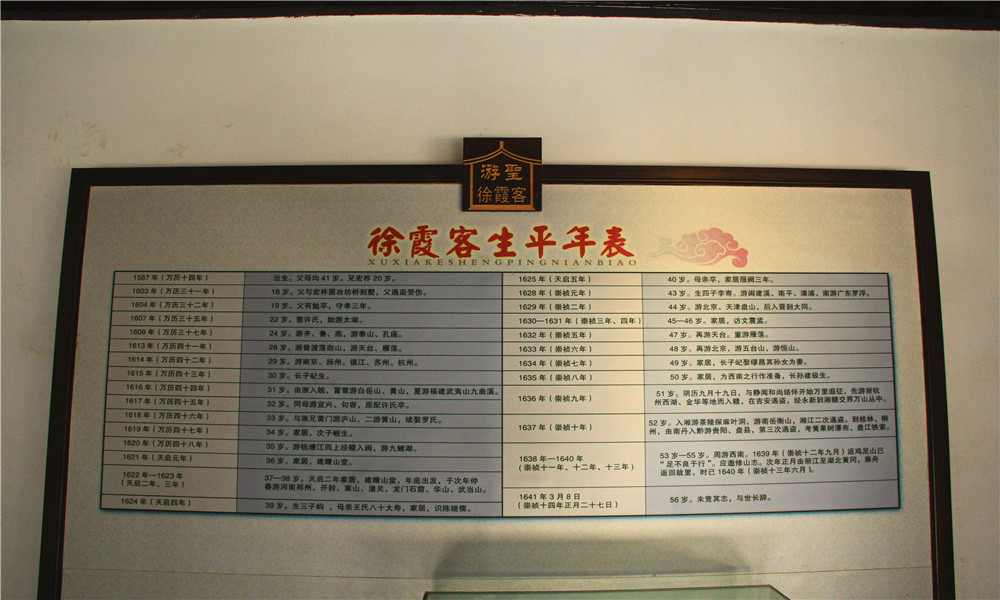 游聖
徐霞客
徐霞客生平年表
XUXIAKESHENGPINGNIANBIAO
1587年（万历十四年） 出生。父母均41岁。兄宏祚20岁。
1603年（万历三十一年） 18岁。父与宏祚居冶坊桥别墅，父遇盗受伤。
1604年（万历三十二年） 19岁。父有勉卒，守孝三年。
1607年（万历三十五年） 22岁。娶许氏，始游太湖。
1609年（万历三十七年） 24岁。游齐、鲁、燕，游泰山、孔庙。
1613年（万历四十一年） 28岁。游普渡落迦山，游天台、雁荡。
1614年（万历四十二年） 29岁。游南京、扬州、镇江、苏州、杭州。
1615年（万历四十三年） 30岁。长子屺生。
1616年（万历四十四年） 31岁。由浙入皖，冒雪游白岳山、黄山，夏游福建武夷山九曲溪。
1617年（万历四十五年） 32岁。同母游宜兴、句容，原配许氏卒。
1618年（万历四十六年） 33岁。与族兄雷门游庐山，二游黄山，续娶罗氏。
1619年（万历四十七年） 34岁。家居，次子岘生。
1620年（万历四十八年） 35岁。游钱塘江而上经赣入闽，游九鲤湖。
1621年（天启元年） 36岁。家居，建晴山堂。
1622年—1623年
（天启二年、三年）
37—38岁。天启二年家居，建晴山堂，年底出发，于次年仲
春游河南郑州、开封、嵩山、潼关、龙门石窟、华山、武当山。
1624年（天启四年） 39岁。生三子岣，母亲王氏八十大寿，家居，识陈继儒。
1625年（天启五年） 40岁。母亲卒，家居服阙三年。
1628年（崇祯元年） 43岁。生四子李寄。游闽建溪、南平、漳浦、南游广东罗浮。
1629年（崇祯二年） 44岁。游北京、天津盘山，后入晋到大同。
1630—1631年（崇祯三年、四年） 45—46岁。家居，访文震孟。
1632年（崇祯五年） 47岁。再游天台。重游雁荡。
1633年（崇祯六年） 48岁。再游北京，游五台山，游恒山。
1634年（崇祯七年） 49岁。家居，长子屺娶缪昌其孙女为妻。
1635年（崇祯八年） 50岁。家居，为西南之行作准备，长孙建极生。
1636年（崇祯九年）
51岁。阴历九月十九日，与静闻和尚结伴开始万里遐征，先游浙杭
州西湖、金华等地而入赣，在吉安遇盗，经永新到湘赣交界万山丛中。
1637年（崇祯十年）
52岁。入湘游茶陵探麻叶洞，游南岳衡山，湘江二次遇盗。到桂林、柳
州，由南丹入黔游贵阳、盘县，第三次遇盗，考黄果树瀑布、盘江铁索。
1638年—1640年
（崇祯十一年、十二年、十三年）
53岁—55岁。周游西南。1639年（崇祯十二年九月）返鸡足山已
“足不良于行”。应邀修山志。次年正月由丽江至湖北黄冈，乘舟
返回故里，时已1640年（崇祯十三年六月）。
1641年3月8日
（崇祯十四年正月二十七日）
56岁。未竟其志，与世长辞。